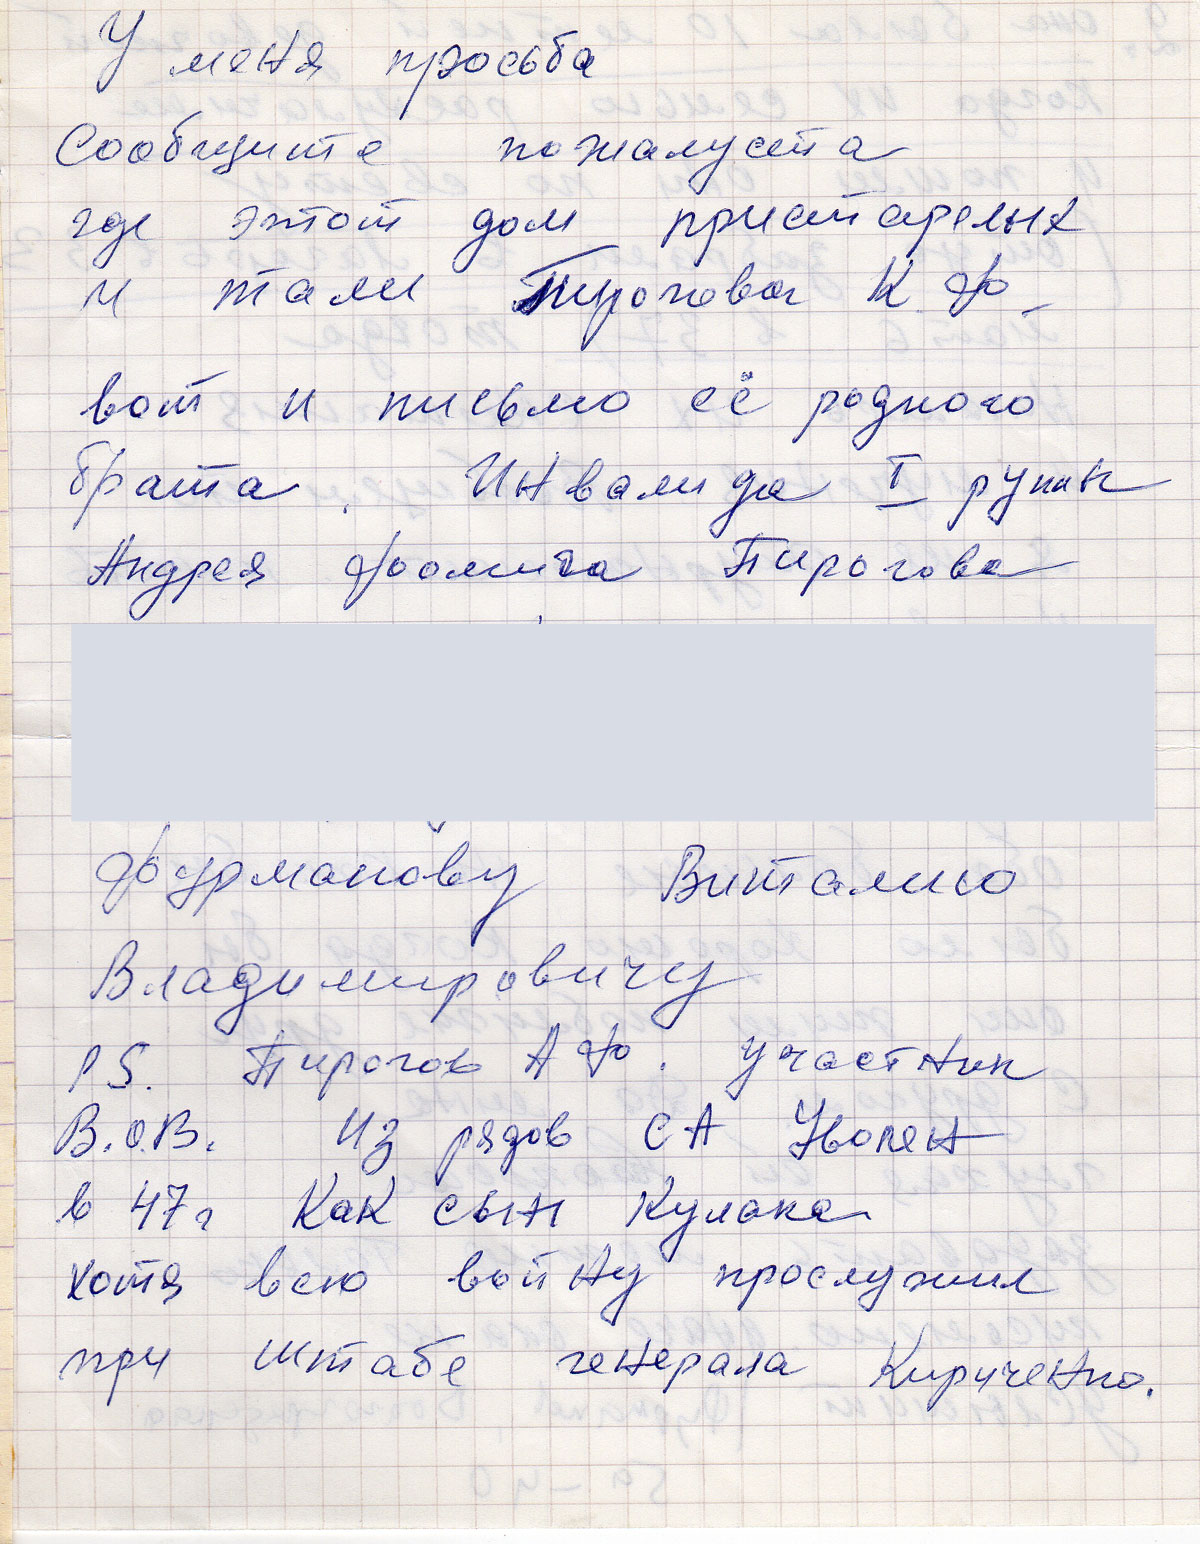 У меня просьба
Сообщите пожалуста
где этот дом пристарелых
и там ли Пирогова К Ф
вот и письмо её родного
брата. Инвалида I рупы
Андрея Фомича Пирогова
Фурманову Виталию
Владимировичу
PS. Пирогов А Ф. участник
В.О.В. Из рядов СА Уволен
в 47г Как сын Кулака
хотя всю войну прослужил
при штабе генерала Кириченко.